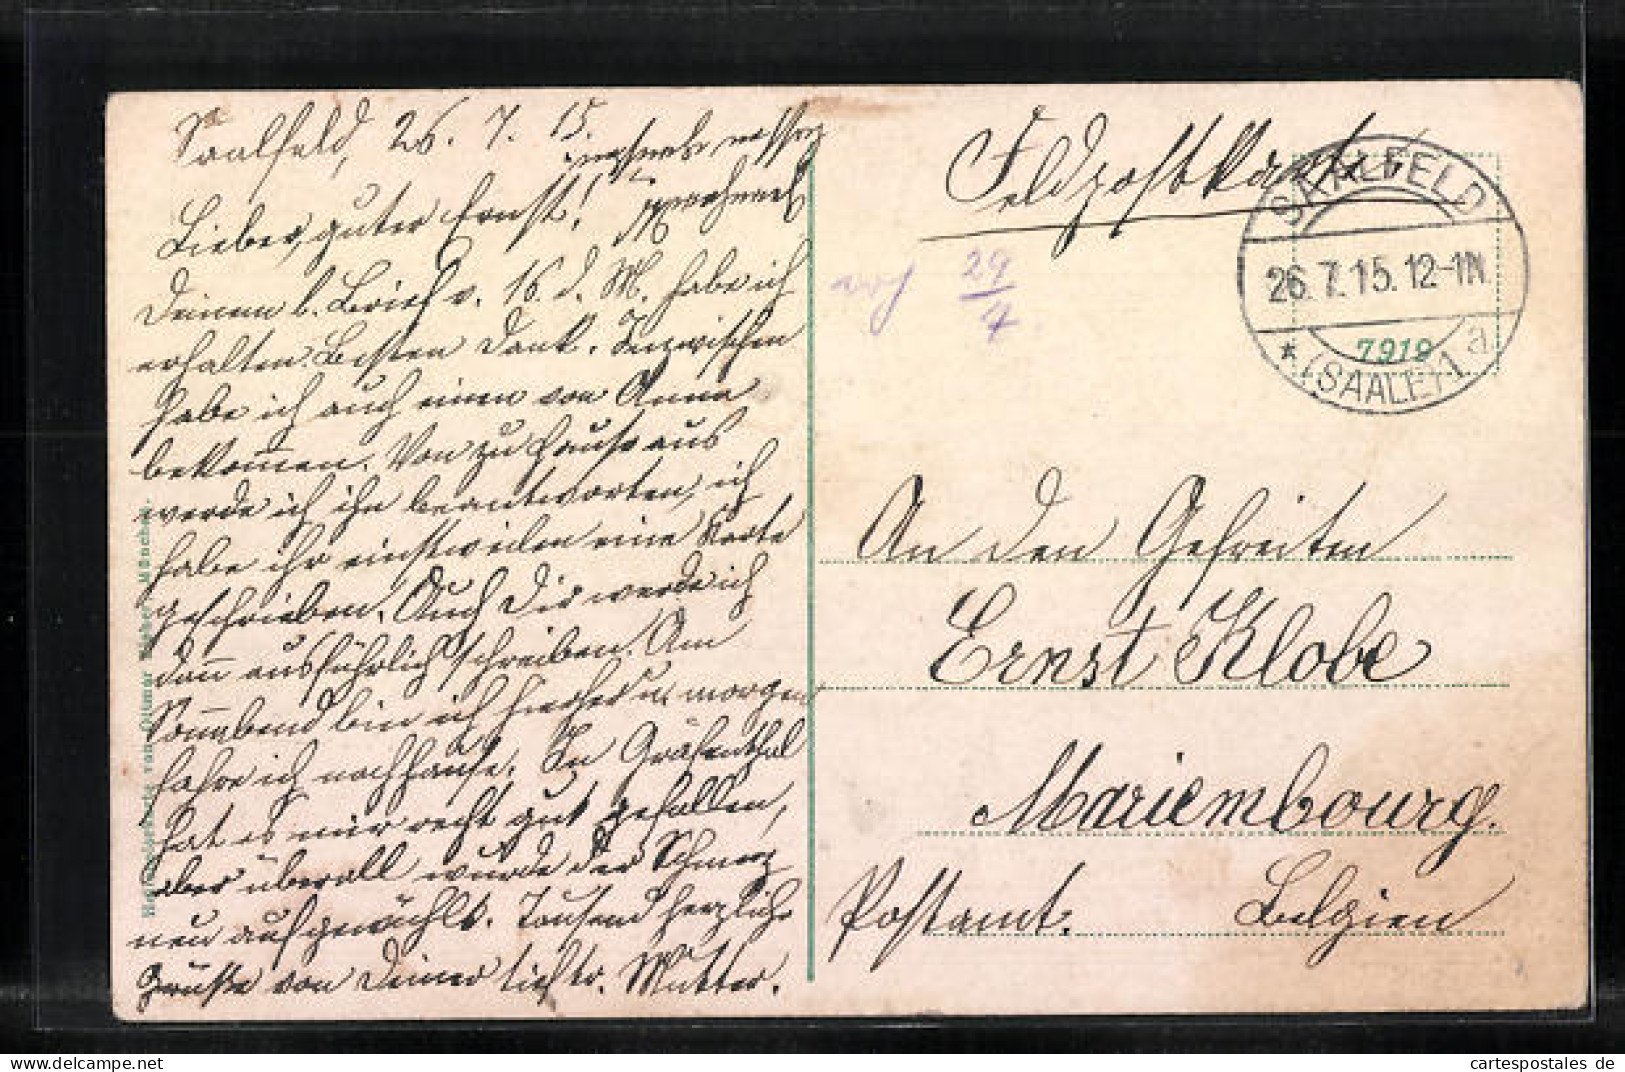 Saalfeld, 26. 7. 15.
Lieber, guter Ernst!
Deinen l. Brief v. 16. d. M. habe ich
erhalten. Besten Dank. Inzwischen
habe ich auch einen von Anna
bekommen. Von zu Hause aus
werde ich ihn beantworten, ich
habe ihr einstweilen eine Karte
geschrieben. Auch Dir werde ich
dann ausführlich schreiben. Am
Sonnabend bin ich hierher u. morgen
fahre ich nachhause. In Gräfenthal
hat es mir recht gut gefallen,
aber überall wurde der Schmerz
neu aufgewühlt. Tausend herzliche
Grüße von Deiner tieftr. Mutter.
Feldpostkarte
29
7.
SAALFELD
26. 7. 15. 12-1N.
* (SAALE) 1 a
7919
An den Gefreiten
Ernst Klobe
Mariembourg.
Postamt. Belgien
München.
cartespostales de